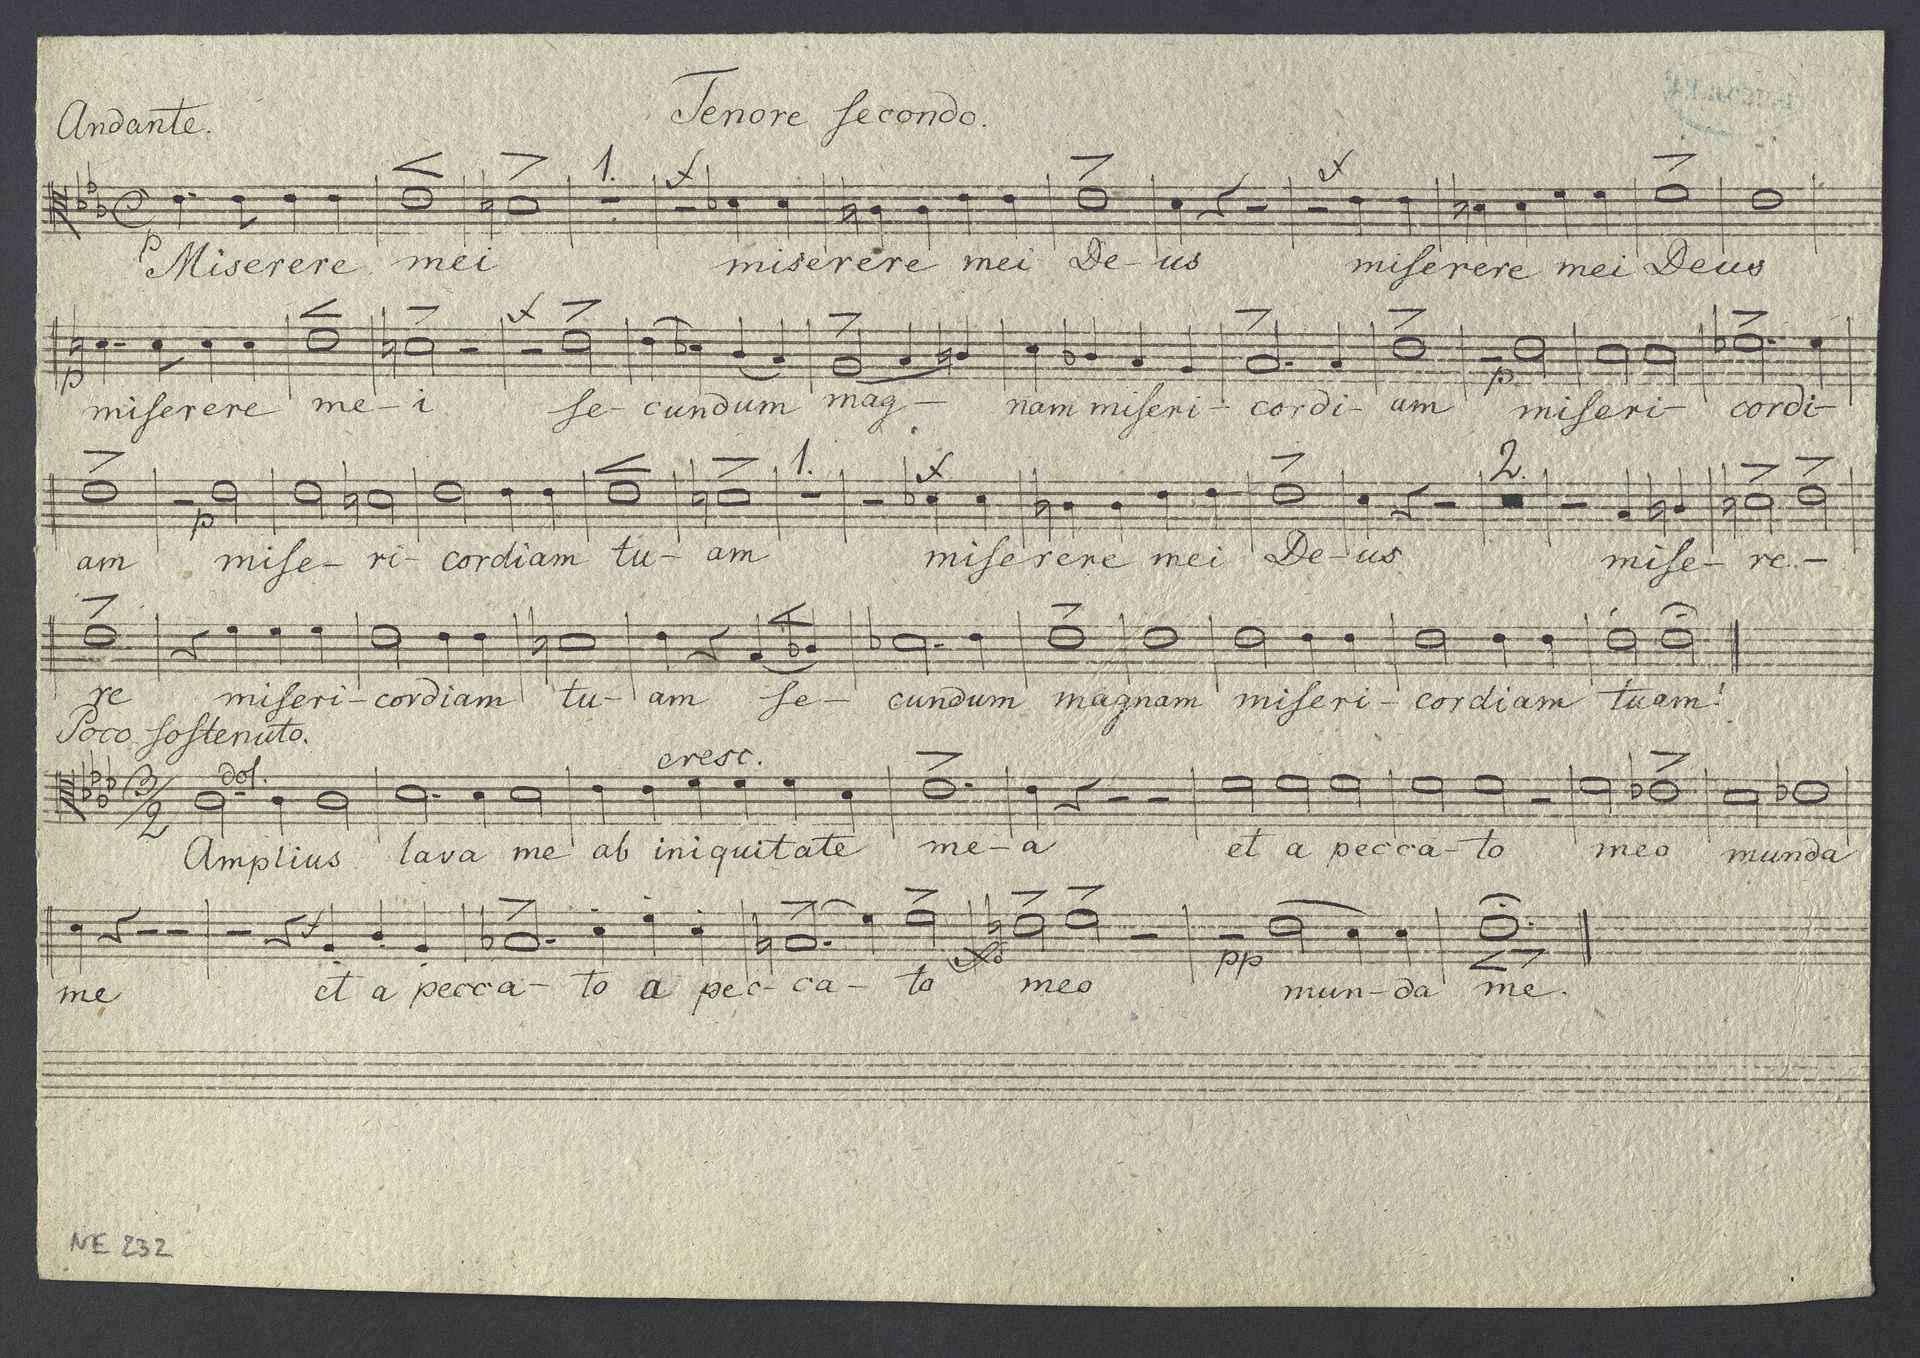 Tenore secondo.
Andante.
1.
p
Miserere mei miserere mei De-us miserere mei Deus
p p
miserere me-i se-cundum mag- nam miseri-cordi-am miseri-cordi-
1. 2.
p
am mise-ri-cordiam tu-am miserere mei De-us mise-re-
re miseri-cordiam tu-am se-cundum magnam miseri-cordiam tuam!
Poco sostenuto.
dol. cresc.
3/2
Amplius lava me ab iniquitate me-a et a pecca-to meo munda
pp
me et a pecca-to a pec-ca-to meo mun-da me.
NE 232